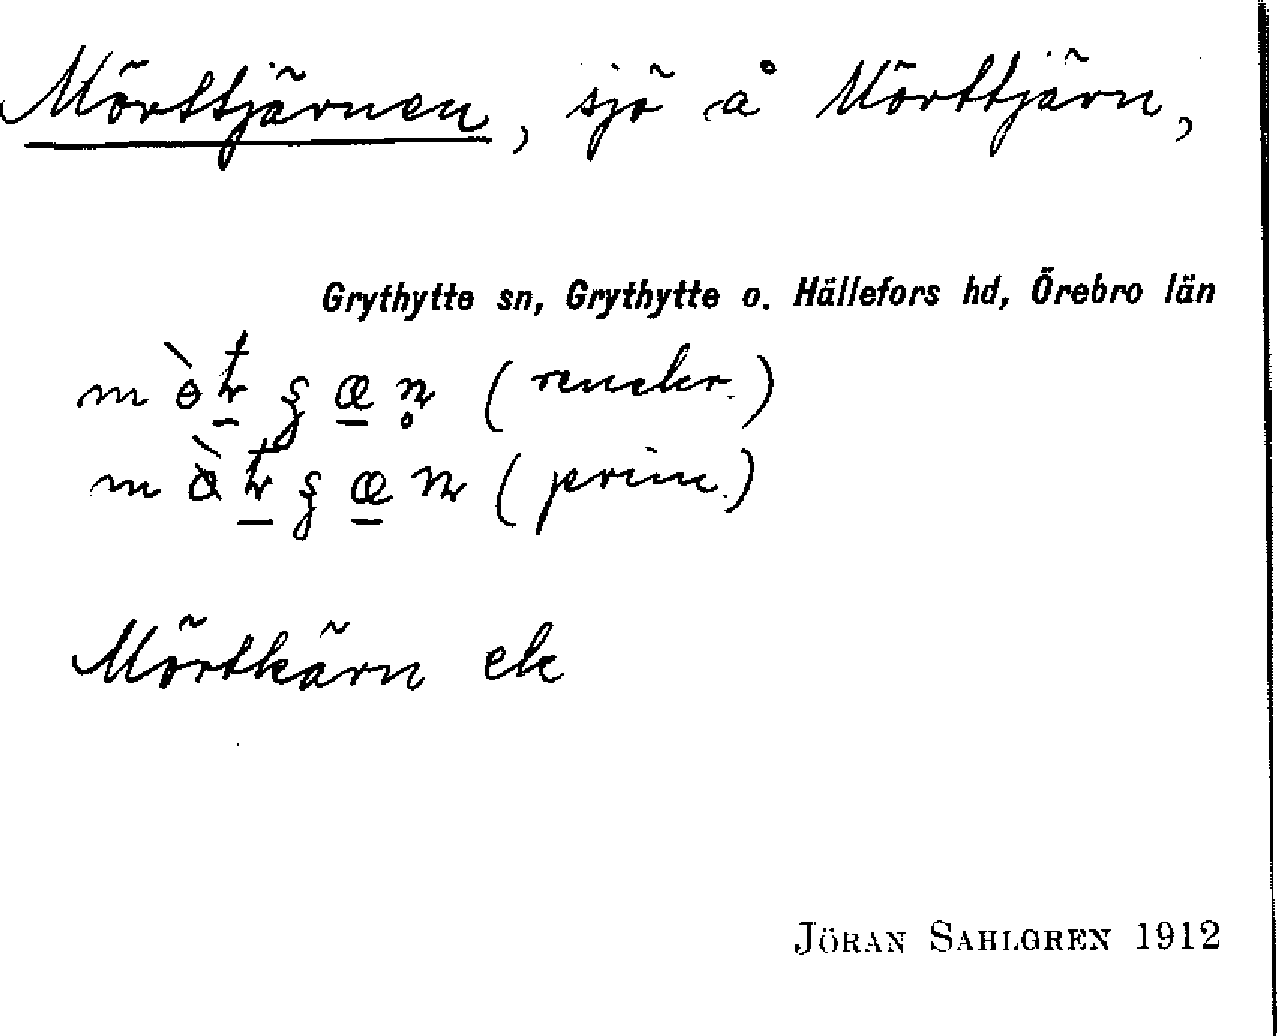 Mörttjärnen, sjö å Mörttjärn,
Grythytte sn, Grythytte o. Hällefors hd, Örebro län
(runckr.)
(prim.)
Mörtkärn ek
JÖRAN SAHLGREN 1912